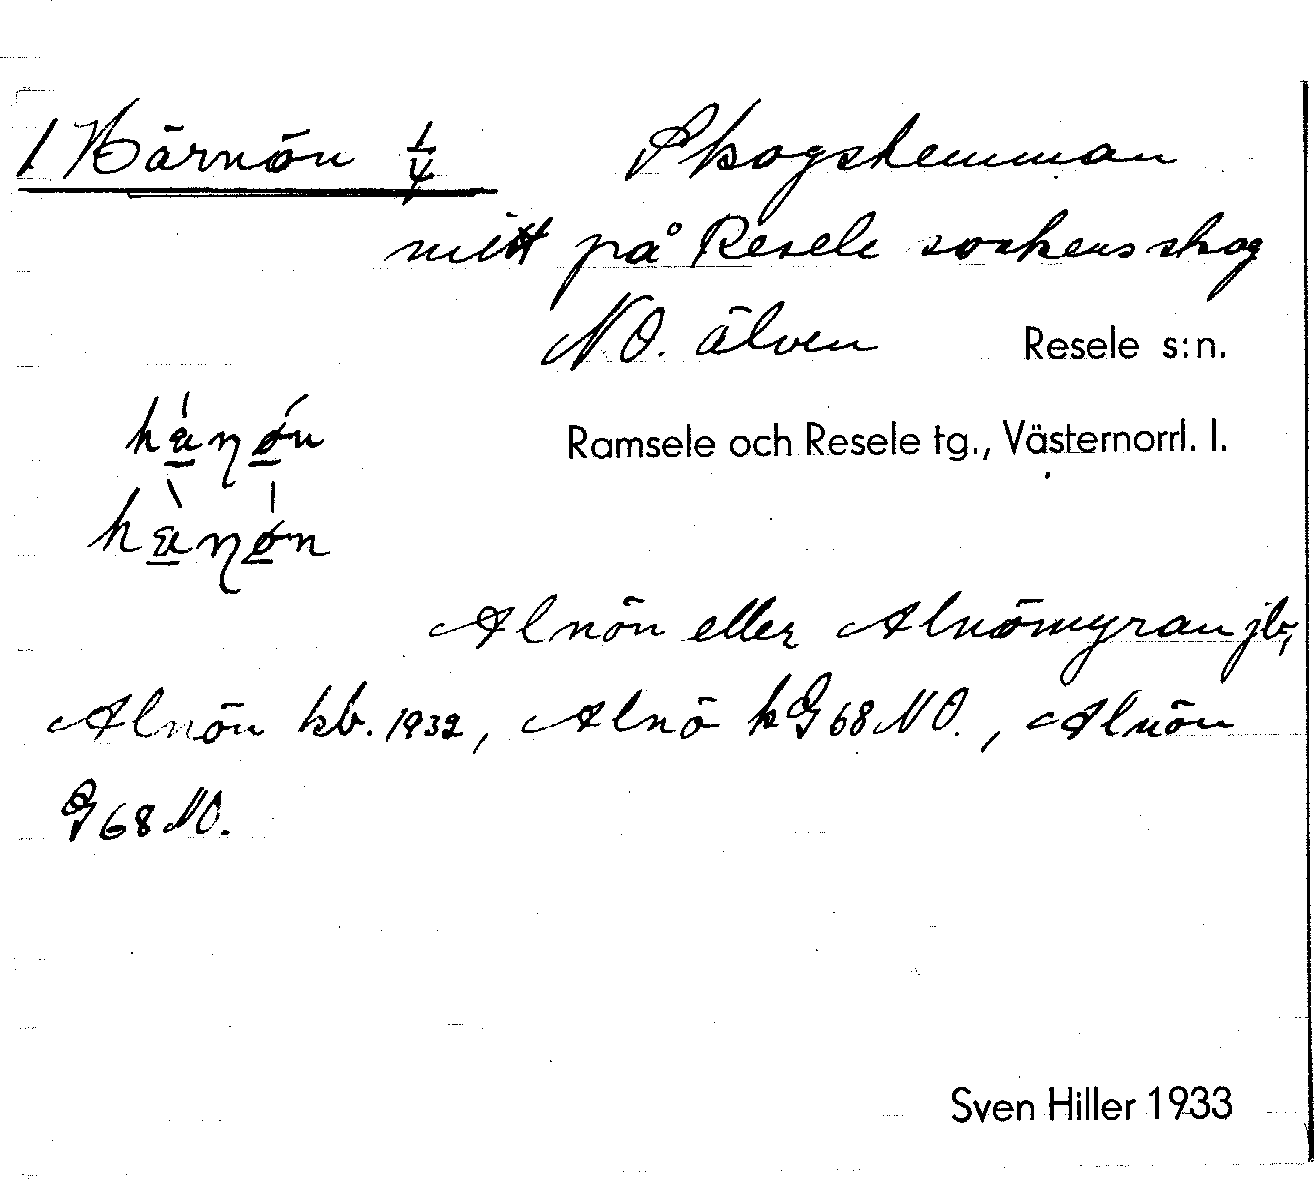 1 Härnön 1/4 Skogshemman
mitt på Resele sockens skog
NO. älven Resele s:n.
Ramsele och Resele tg., Västernorrl. l.
Alnön eller Alnömyran jb,
Alnön kb. 1932, Alnö kG 68 NO., Alnön
G 68 NO.
Sven Hiller 1933